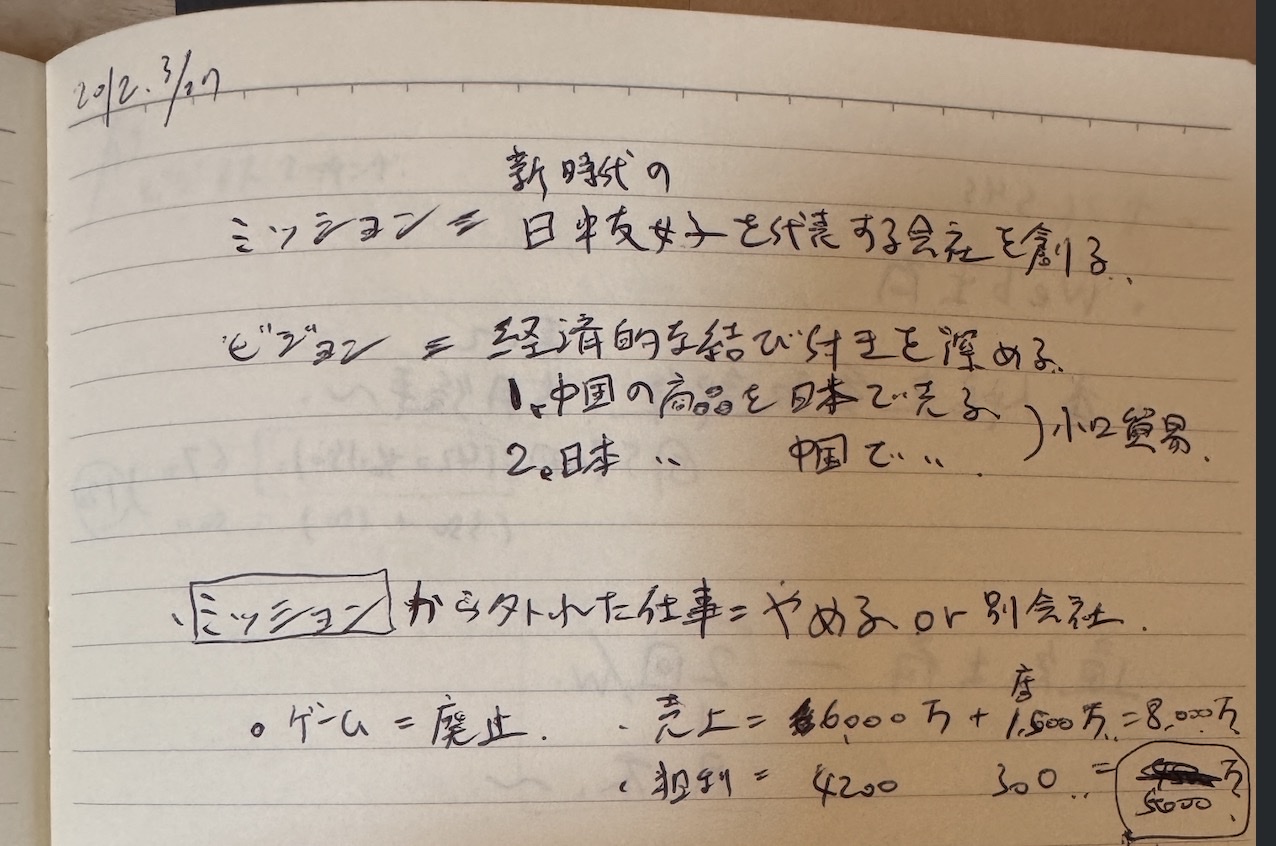 2012.3/27
新時代の
ミッション = 日中友好を代表する会社を創る.
ビジョン = 経済的な結び付きを深める.
1. 中国の商品を日本で売る
2. 日本 〃 中国で 〃 . ) 小口貿易.
・ミッション から外れた仕事 = やめる or 別会社.
店
○ ゲーム = 廃止. ・売上 = 6,000万 + 1,500万 = 8,000万
・粗利 = 4200 300 = 5000 万